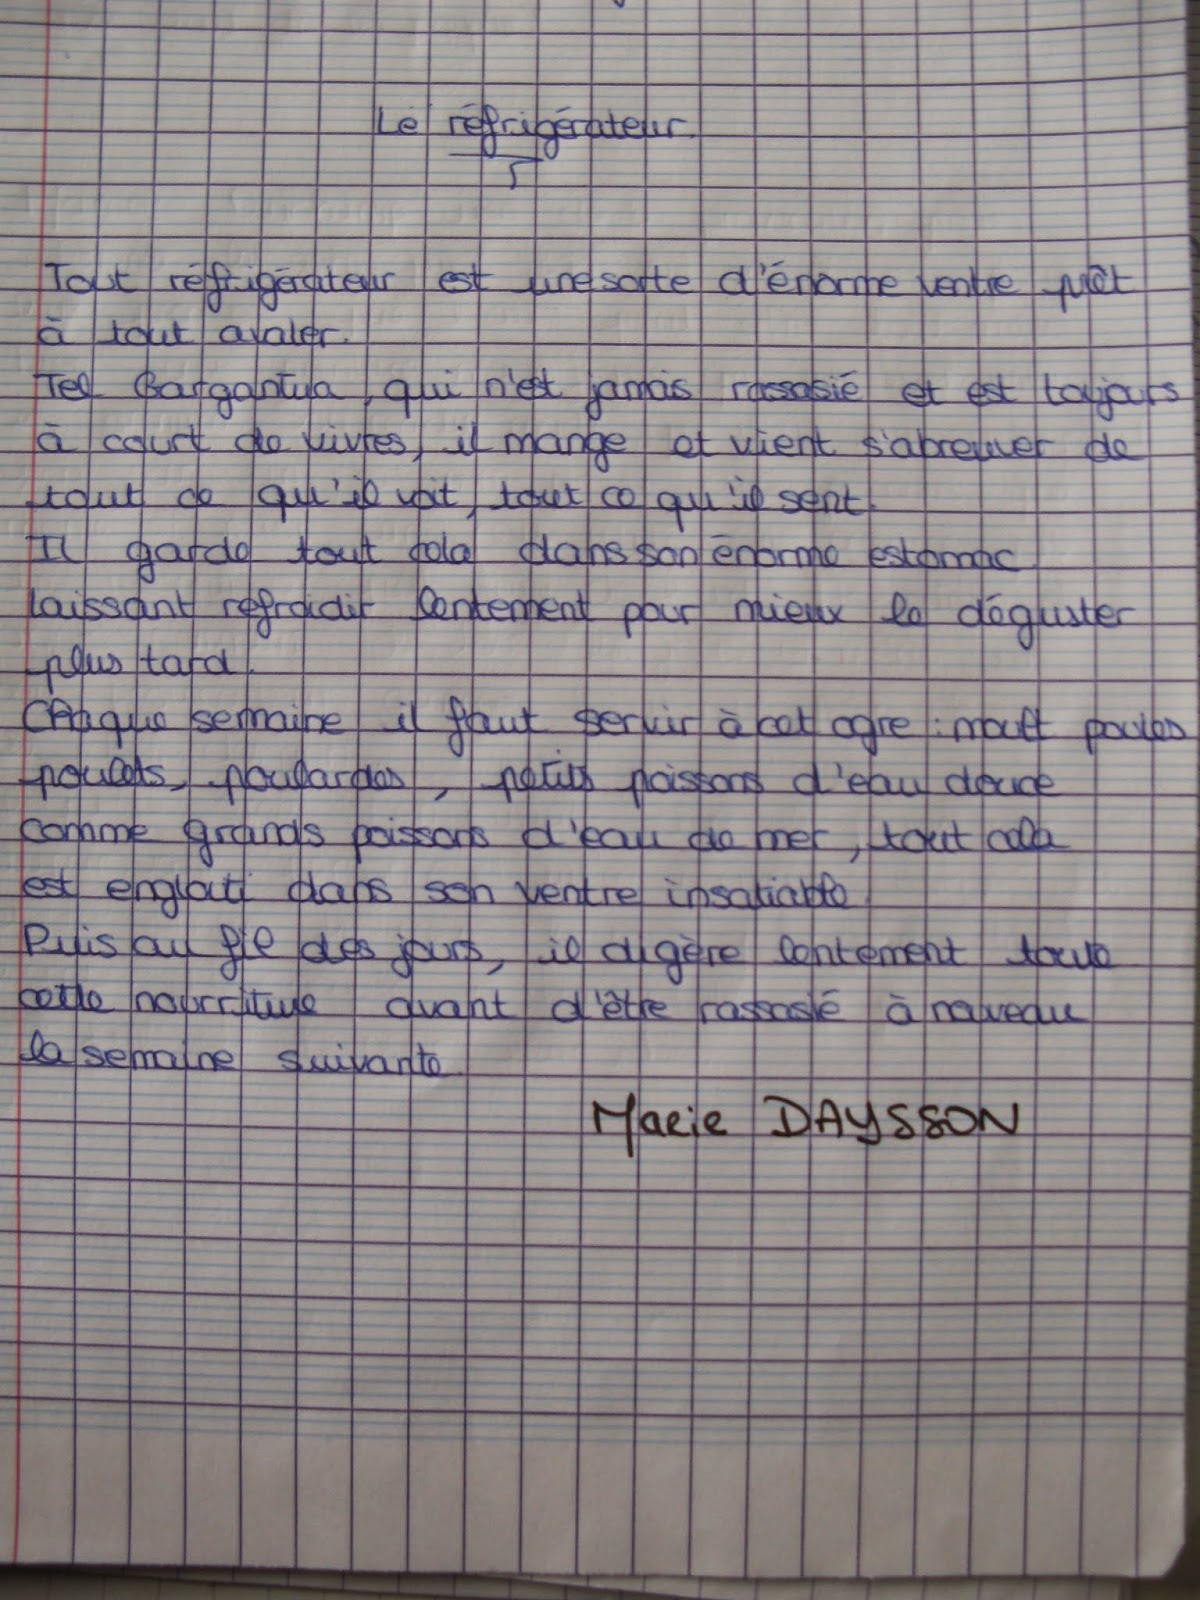 Le réfrigérateur
Tout réfrigérateur est une sorte d'énorme ventre prêt
à tout avaler.
Tel Gargantua, qui n'est jamais rassasié et est toujours
à court de vivres, il mange et vient s'abreuver de
tout ce qu'il voit, tout ce qu'il sent.
Il garde tout cela dans son énorme estomac
laissant refroidir lentement pour mieux le déguster
plus tard.
Chaque semaine il faut servir à cet ogre : moult poules
poulets, poulardes, petits poissons d'eau douce
comme grands poissons d'eau de mer, tout cela
est englouti dans son ventre insatiable.
Puis au fil des jours, il digère lentement toute
cette nourriture avant d'être rassasié à nouveau
la semaine suivante.
Marie DAYSSON